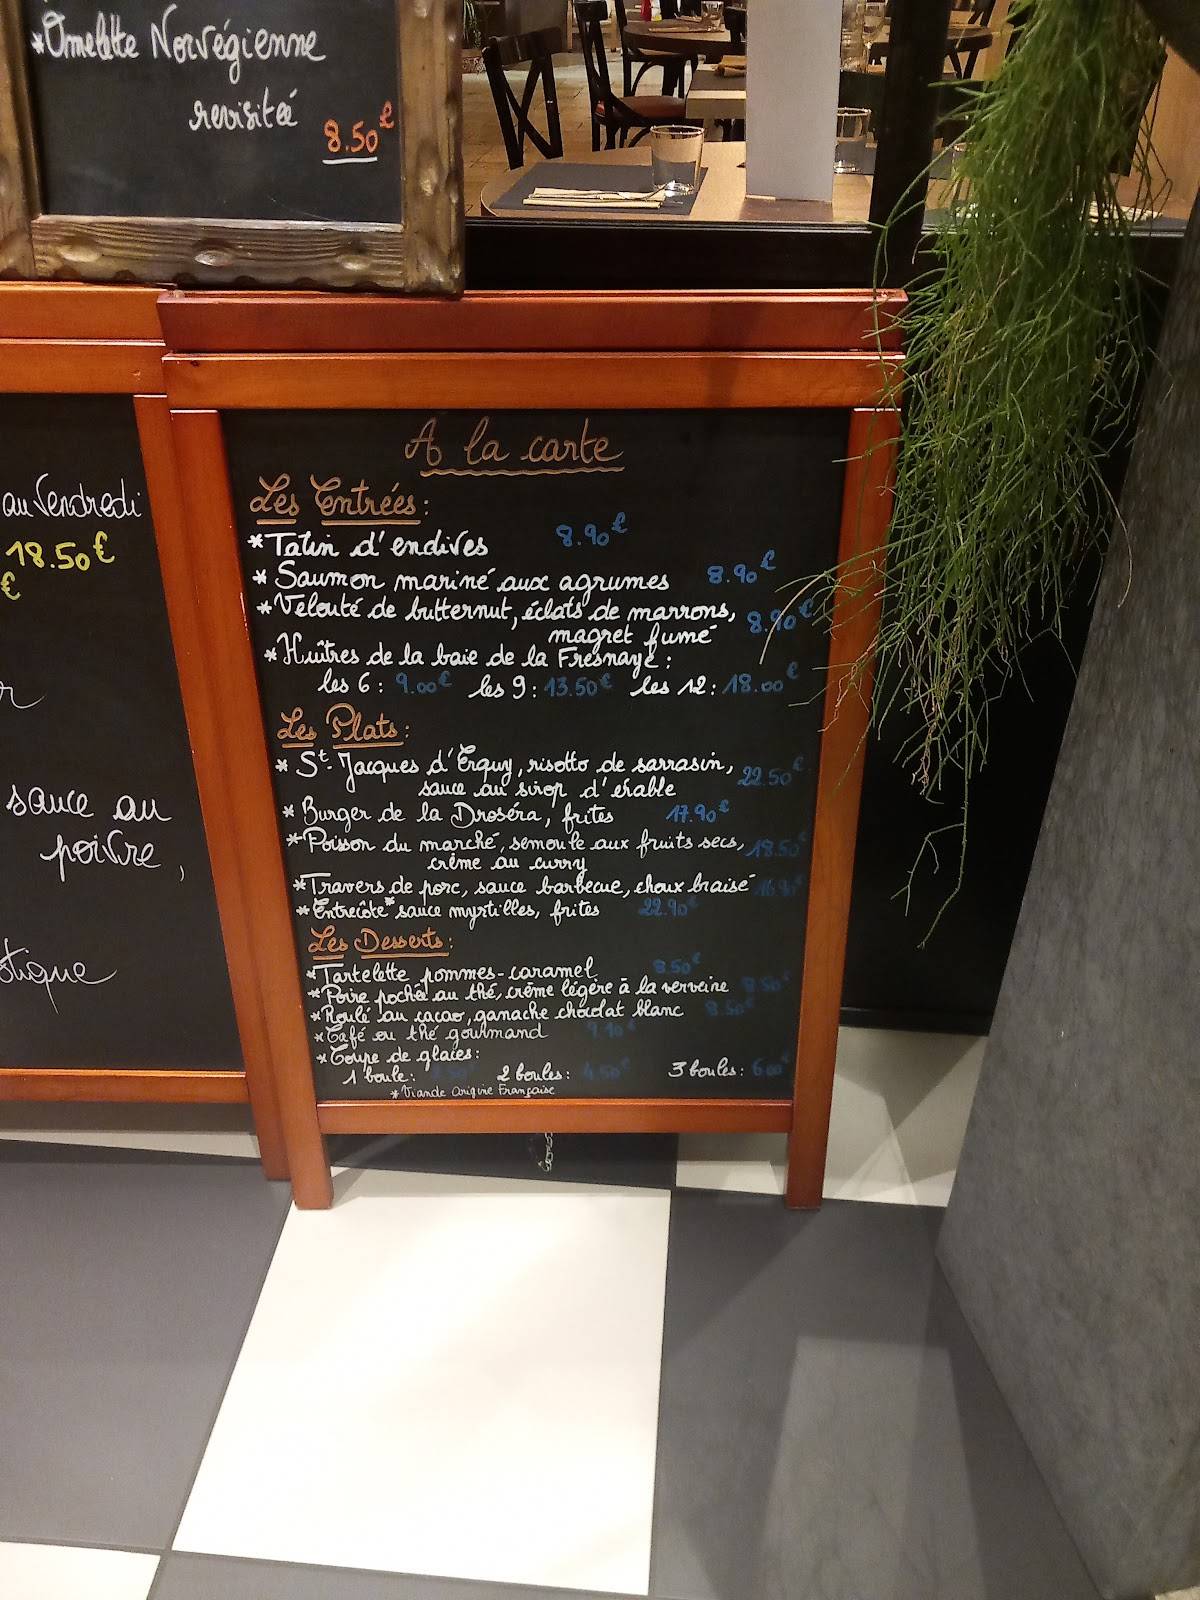 *Omelette Norvégienne
revisiteé 8.50€
au Vendredi
18.50€
€
sauce au
poivre,
A la carte
Les Entrées:
*Tatin d'endives 8.90€
* Saumon mariné aux agrumes 8.90€
*Velouté de butternut, éclats de marrons, 8.90€
magret fumé
*Huîtres de la baie de la Fresnaye:
les 6: 9.00€ les 9: 13.50€ les 12: 18.00€
Les Plats:
* St-Jacques d'Erquy, risotto de sarrasin, 22.50€
sauce au sirop d'erable
* Burger de la Droséra, frites 17.90€
*Poisson du marché, semoule aux fruits secs, 18.50€
crème au curry
*Travers de porc, sauce barbecue, choux braisé
*Entrecôte* sauce myrtilles, frites 22.90€
Les Desserts:
*Tartelette pommes-caramel 8.50€
*Poire pochée au thé, crème légère à la verveine 8.50€
*Roulé au cacao, ganache chocolat blanc 8.50€
*Café ou thé gourmand 9.10€
*Coupe de glaces:
1 boule: 2 boules: 4.50€ 3 boules: 6.00€
*Viande Origine Française